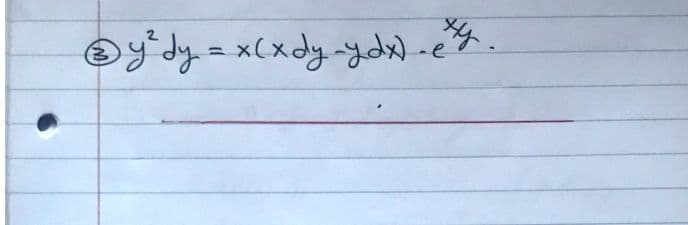 ③ y² dy = x(x dy - y dx) - e^{x/y}.